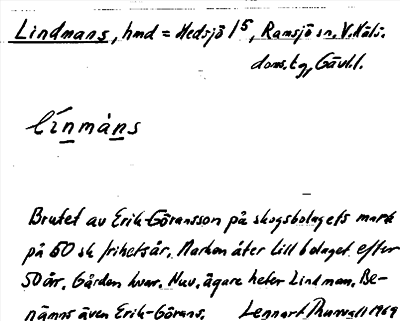 Lindmans, hmd = Hedsjö 1⁵, Ramsjö sn, V. Häls.
doms.tg, Gävl.l.
línmàns
Brutet av Erik-Göransson på skogsbolagets mark
på 50 sk frihetsår. Marken åter till bolaget efter
50 år. Gården kvar. Nuv. ägare heter Lindman. Be-
nämns även Erik-Görans. Lennart Thunvall 1969